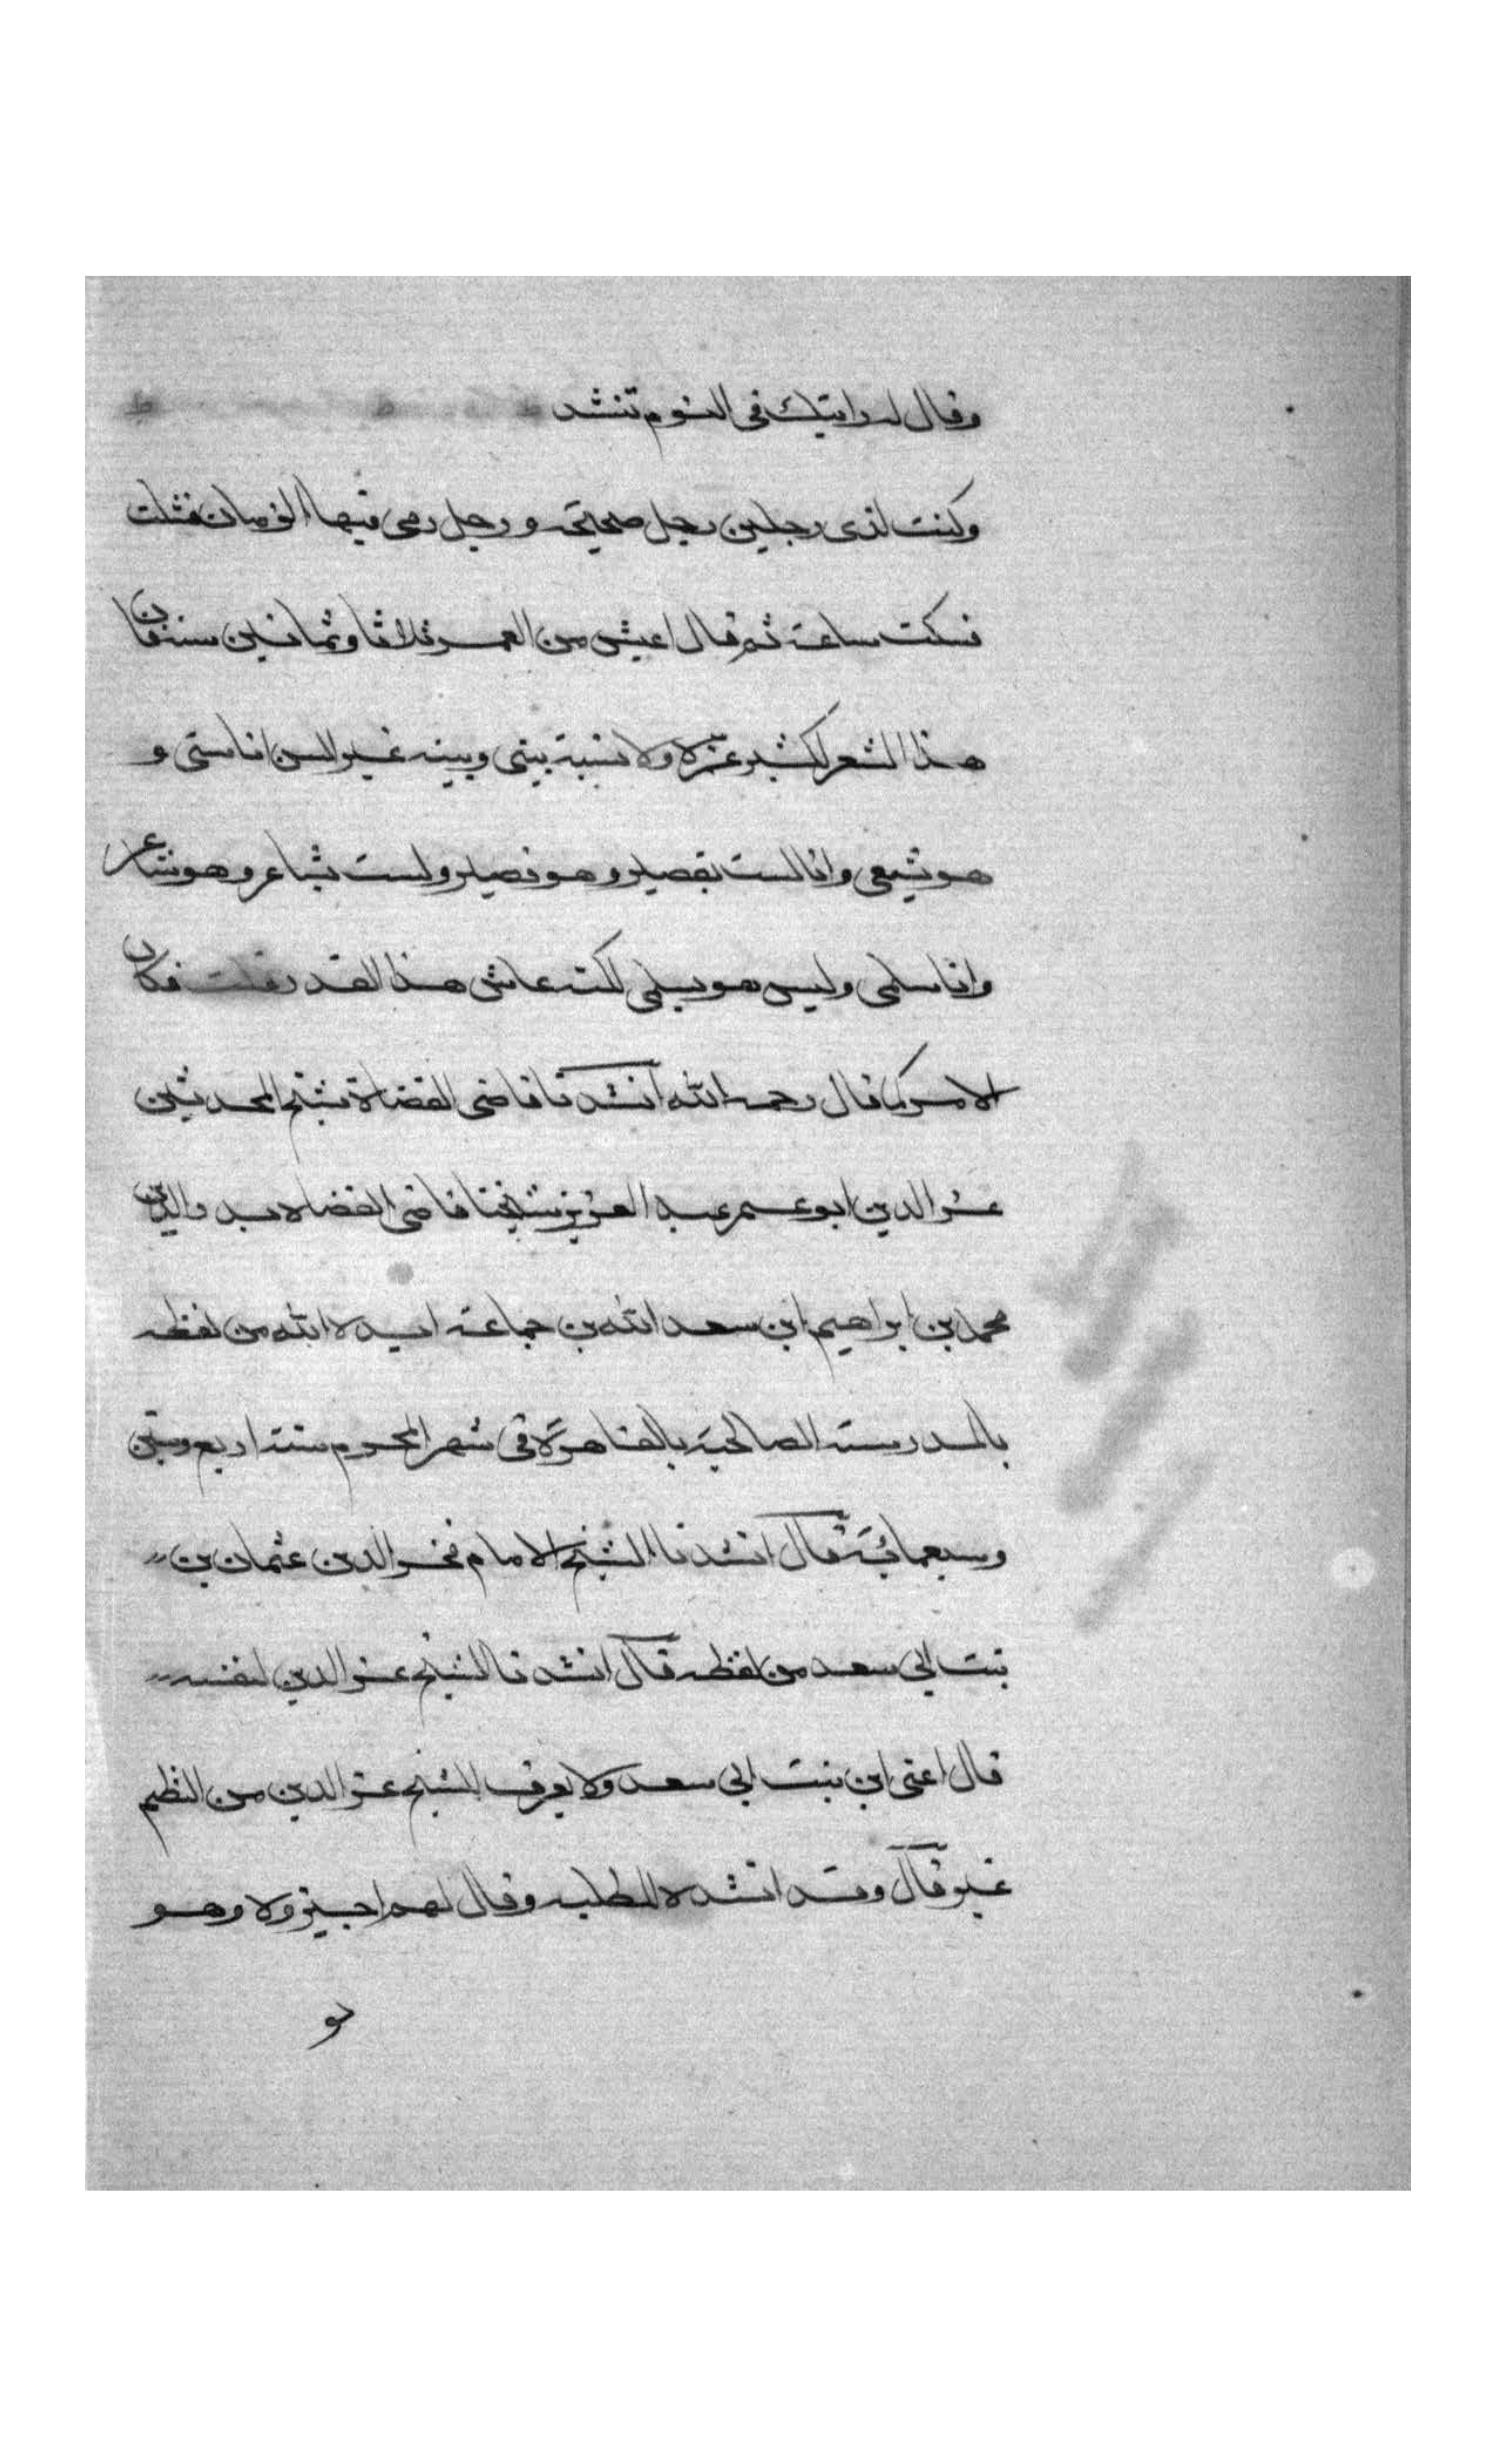 وقال له رايتك في النوم تنشد
وكنت لذى رجلين رجل صحيحة ورجل رمى فيها الزمان فشلت
فسكت ساعة ثم قال اعيش من العمر ثلاثا وثمانين سنة فان
هذا الشعر لكثير عزة ولا نسبة بيني وبينه غير السن انا سني و
هو شيعي وانا لست بقصير وهو قصير ولست بشاعر وهو شاعر
وانا سلمى وليس هو بسلمى لكنه عاش هذا القدر قلت فكان
الامر كما قال رحمه الله انشدنا قاضي القضاة شيخ المحدثين
عز الدين ابو عمر عبد العزيز شيخنا قاضي القضاة بدر الدين
محمد بن ابراهيم ابن سعد الله بن جماعة ايده الله من لفظه
بالمدرسة الصالحية بالقاهرة في شهر المحرم سنة اربع وستين
وسبعمائة قال انشدنا الشيخ الامام فخر الدين عثمان بن
بنت ابي سعد من لفظه قال انشدنا الشيخ عز الدين لنفسه
قال اعني ابن بنت ابي سعد ولا يعرف للشيخ عز الدين من النظم
غيره قال وقد انشده للطلبه وقال لهم اجيزوه وهو
لو